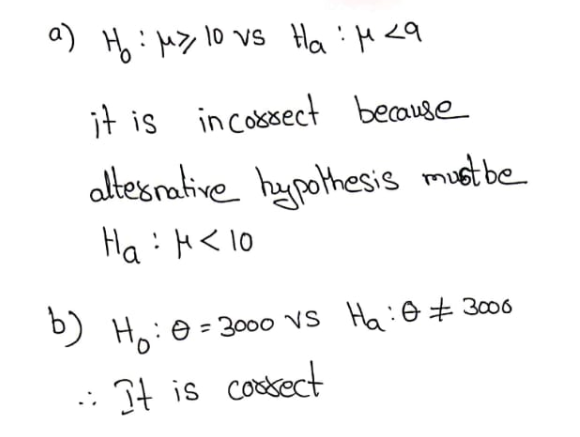 a) H₀ : μ ≥ 10 vs Ha : μ < 9
it is incorrect because
alternative hypothesis must be
Ha : μ < 10
b) H₀ : θ = 3000 vs Ha : θ ≠ 3000
∴ It is correct